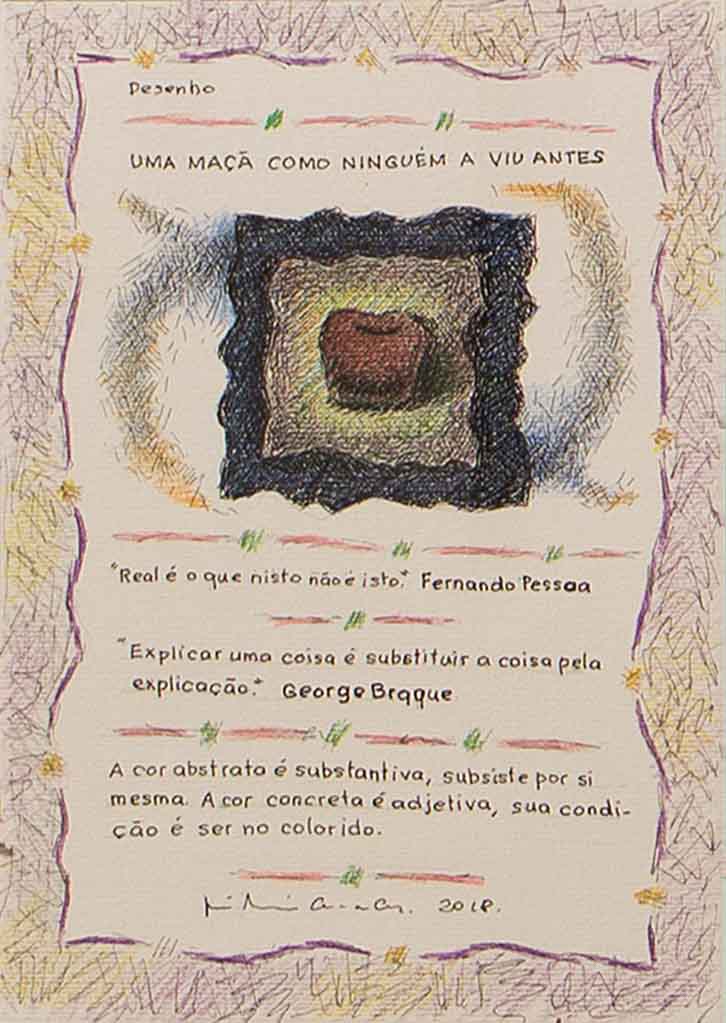 Desenho
UMA MAÇÃ COMO NINGUÉM A VIU ANTES
"Real é o que nisto não é isto." Fernando Pessoa
"Explicar uma coisa é substituir a coisa pela
explicação." George Braque
A cor abstrata é substantiva, subsiste por si
mesma. A cor concreta é adjetiva, sua condi-
ção é ser no colorido.
2018.